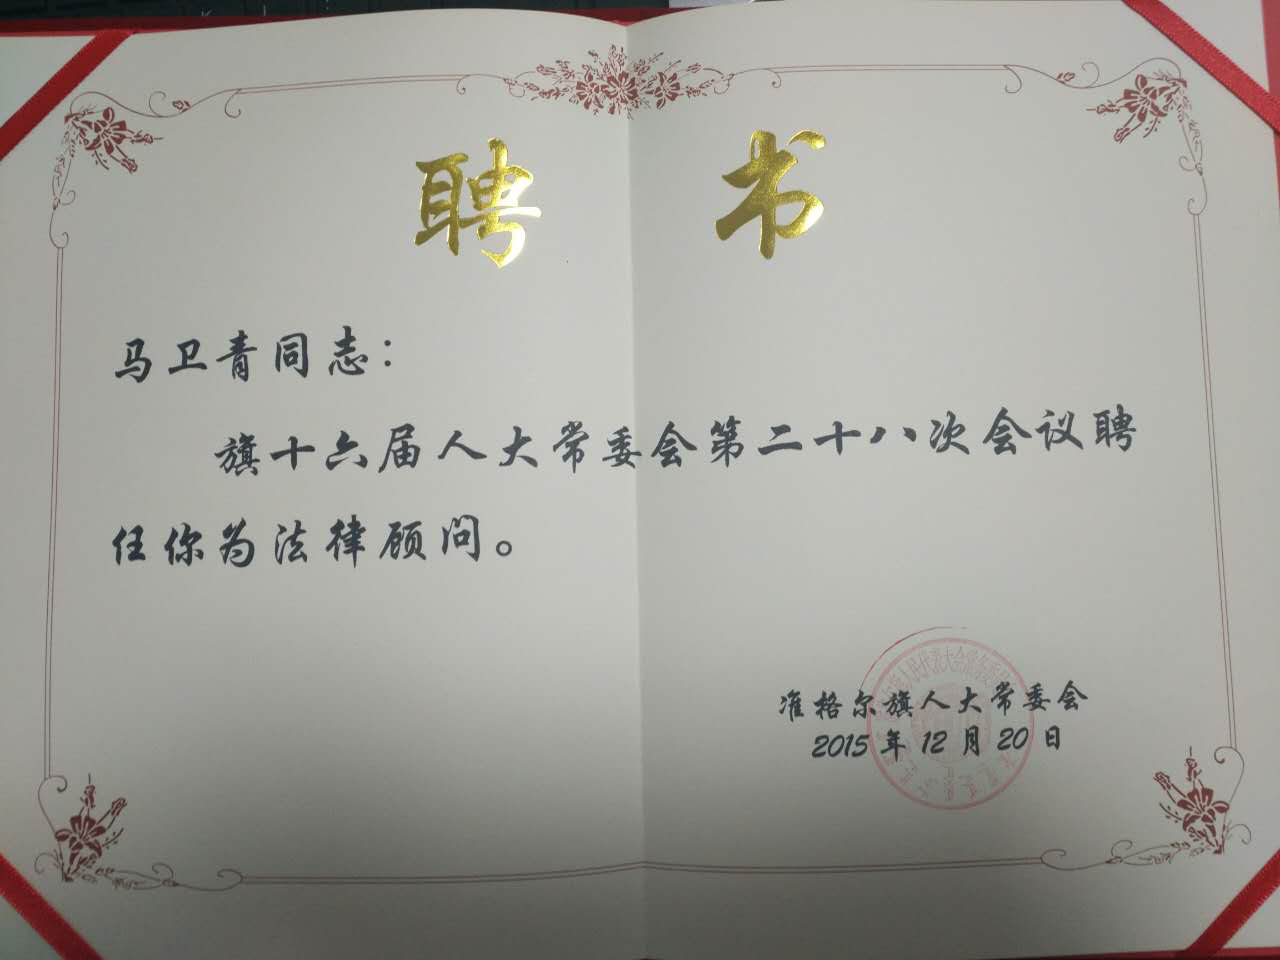 聘 书
马卫青同志：
旗十六届人大常委会第二十八次会议聘
任你为法律顾问。
准格尔旗人大常委会
2015年12月20日